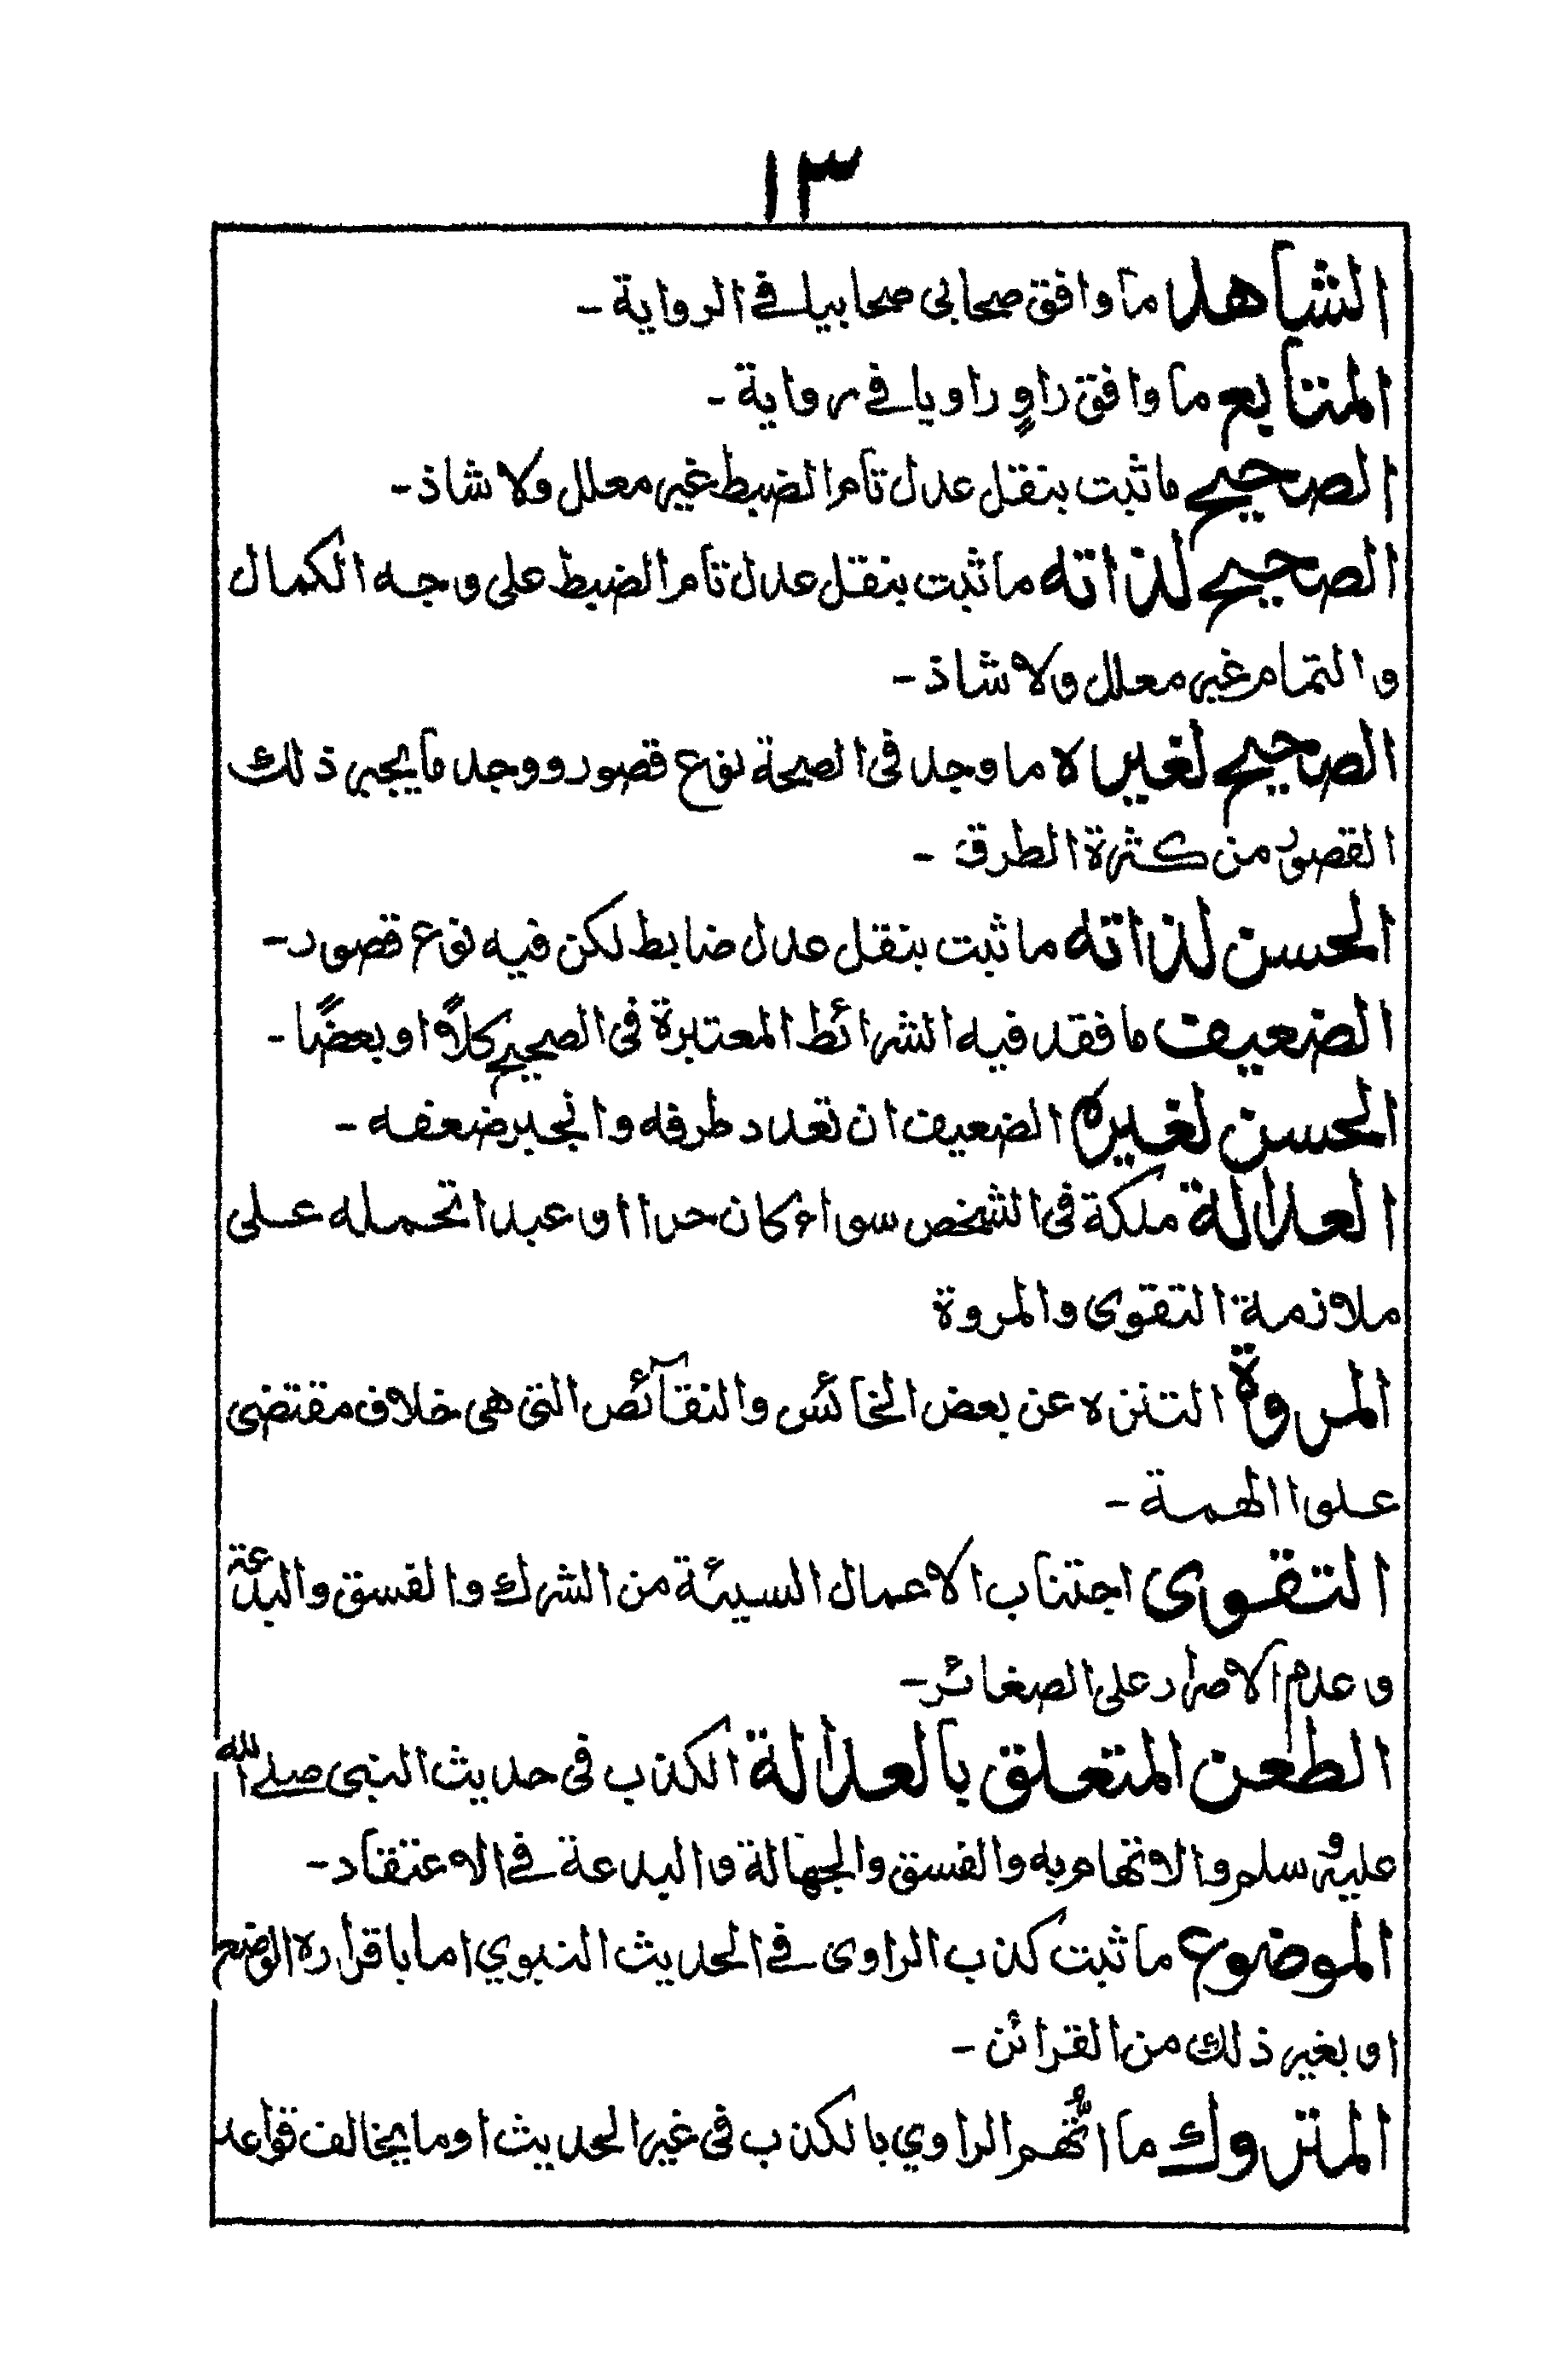 ١٣
الشاهد ما وافق صحابى صحابيا فى الرواية -
المتابع ما وافق راوٍ راويا فى رواية -
الصحيح ما ثبت بنقل عدل تام الضبط غير معلل ولا شاذ -
الصحيح لذاته ما ثبت بنقل عدل تام الضبط على وجه الكمال
والتمام غير معلل ولا شاذ -
الصحيح لغيره ما وجد فى الصحة نوع قصور ووجد ما يجبر ذلك
القصور من كثرة الطرق -
الحسن لذاته ما ثبت بنقل عدل ضابط لكن فيه نوع قصور -
الضعيف ما فقد فيه الشرائط المعتبرة فى الصحيح كلًا او بعضًا -
الحسن لغيره الضعيف ان تعدد طرقه وانجبر ضعفه -
العدالة ملكة فى الشخص سواء كان حرا او عبدا تحمله على
ملازمة التقوى والمروة
المروة التنزه عن بعض الخائس والنقآئص التى هى خلاف مقتضى
علوا الهمة -
التقوى اجتناب الاعمال السيئة من الشرك والفسق والبدعة
وعدم الاصرار على الصغائر -
الطعن المتعلق بالعدالة الكذب فى حديث النبى صلے الله
عليه وسلم والاتهام به والفسق والجهالة والبدعة فى الاعتقاد -
الموضوع ما ثبت كذب الراوى فى الحديث النبوي اما باقراره الوضع
او بغير ذلك من القرائن -
المتروك ما اتُّهم الراوي بالكذب فى غير الحديث او ما يخالف قواعد